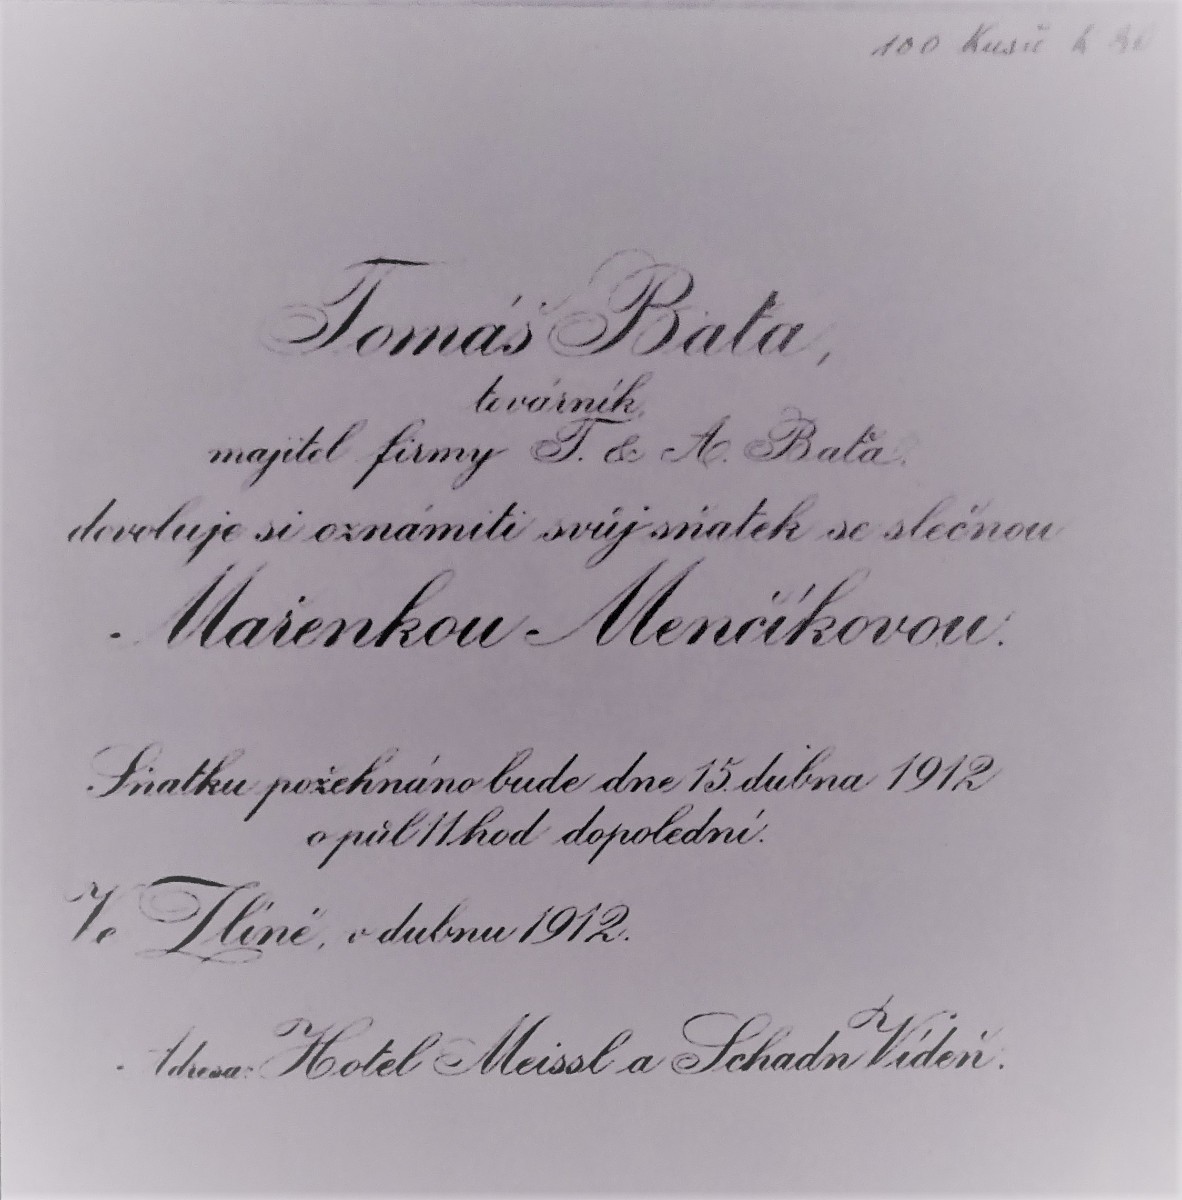 100 Kusů
Tomáš Baťa,
továrník,
majitel firmy T. & A. Baťa.
dovoluje si oznámiti svůj sňatek se slečnou
Mařenkou Menčíkovou.
Sňatku požehnáno bude dne 15. dubna 1912
o půl 11. hod dopolední.
Ve Zlíně, v dubnu 1912.
Adresa: Hotel Meissl a Schadn Vídeň.